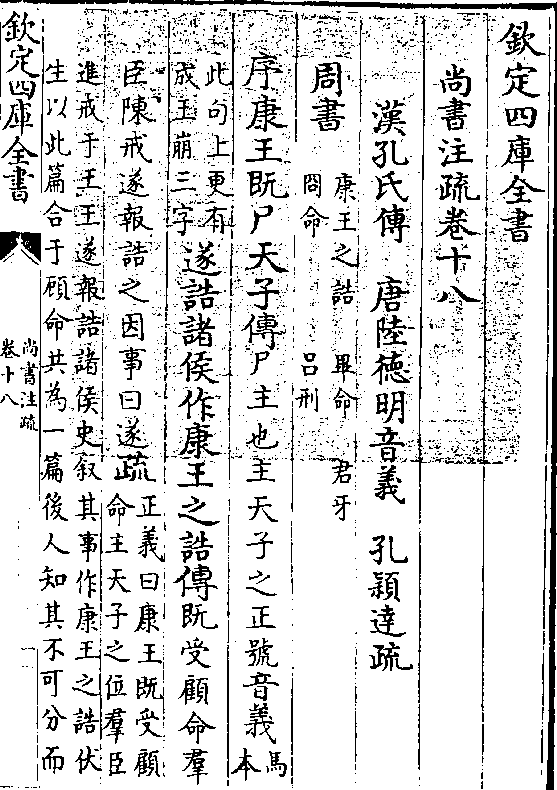 欽定四庫全書
尚書注疏卷十八
漢孔氏傳 唐陸德明音義 孔穎達疏
周書
康王之誥 畢命 君牙
冏命 呂刑
序康王既尸天子傳尸主也主天子之正號音義馬本
此句上更有
成王崩三字
遂誥諸侯作康王之誥傳既受顧命羣
臣陳戒遂報誥之因事曰遂疏
正義曰康王既受顧
命主天子之位羣臣
進戒于王王遂報誥諸侯史叙其事作康王之誥伏
生以此篇合于顧命共為一篇後人知其不可分而
欽定四庫全書
尚書注疏
卷十八
一